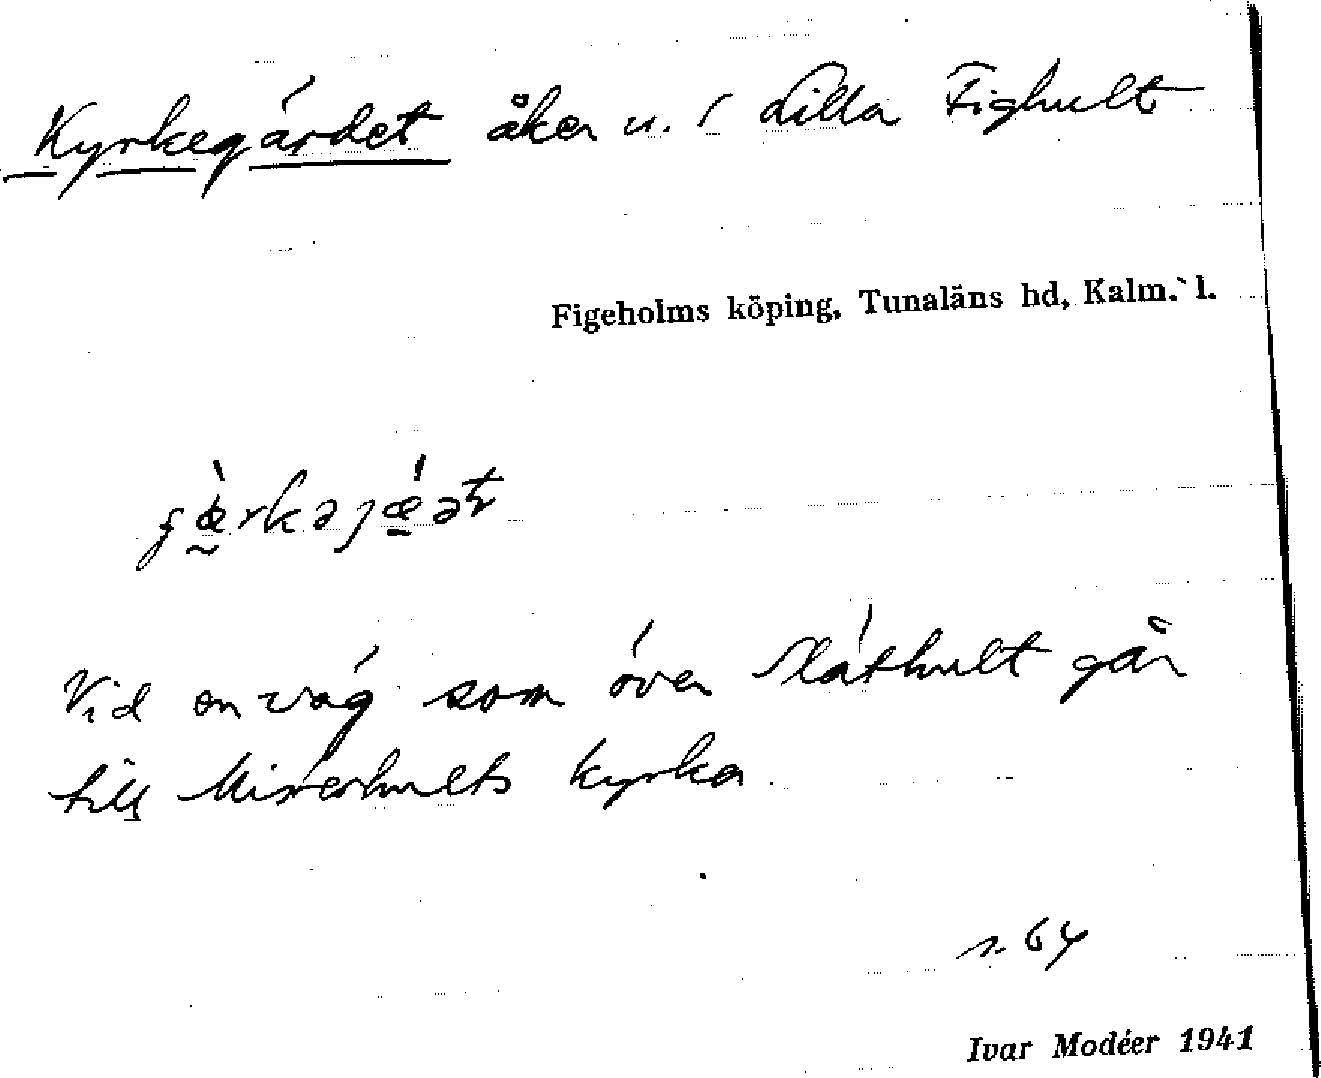 Kyrkegärdet åker u. i Lilla Fighult
Figeholms köping, Tunaläns hd, Kalm. l.
Vid en väg som över Släthult går
till Misterhults kyrka.
s. 64
Ivar Modéer 1941